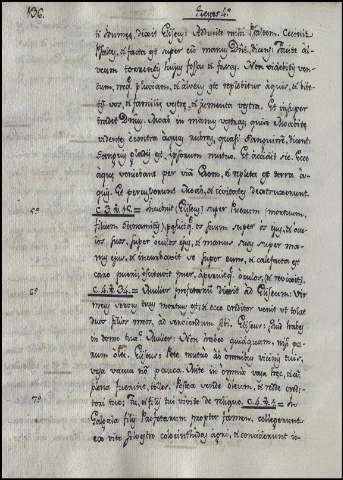 136.
ti sumus, dixit Eliseus: Adducite mihi Psaltem. Cecinit
Psaltes, et facta est super eum manus Dñi, dicens: Facite al-
veum torrentis hujus fossas et fossas. Non videbitis ven-
tum, neq. pluviam, et alveus iste replebitur aquis, et bibe-
tis vos, et familiæ vestræ, et jumenta vestra. Et insuper
tradet Dnus Moab in manus vestras; quia Moabitæ
videntes e contra aquas rubras, quasi sanguinem, dicent:
Sanguis gladii est, ipsorum mutuo. Et accidit sic. Ecce
aquæ veniebant per viam Edom, et repleta est terra a-
quis. Et percusserunt Moab, et civitates destruxerunt.
5º
incubuit (Eliseus) super Puerum mortuum,
filium Sunamitis, posuitq. os suum super os ejus, et ocu-
los suos super oculos ejus, et manus suas super ma-
nus ejus, et incurbavit se super eum, et calefacta est
caro pueri, oscitavit puer, aperuitq. oculos, et revixit.
6º
Mulier prophetarum dixit ad Eliseum: Vir
meus servus tuus mortuus est, et ecce creditor venit ut tollat
duos filios meos, ad serviendum sibi. Eliseus: Quid habes
in domo tua? Mulier: Non habeo quidquam, nisi pa-
rum olei. Eliseus: Pete mutuo ab omnibus vicinis tuis
vasa vacua non pauca. Mitte in omnia vasa hæc, et cum
plena fuerint, tolles. Postea vende oleum, et redde credi-
tori tuo; Tu, et filii tui vivite de reliquo.
7º
In
Galgala filii Prophetarum propter famem, collegerunt
ex vite silvestro colocinthidas agri, et conciderunt in